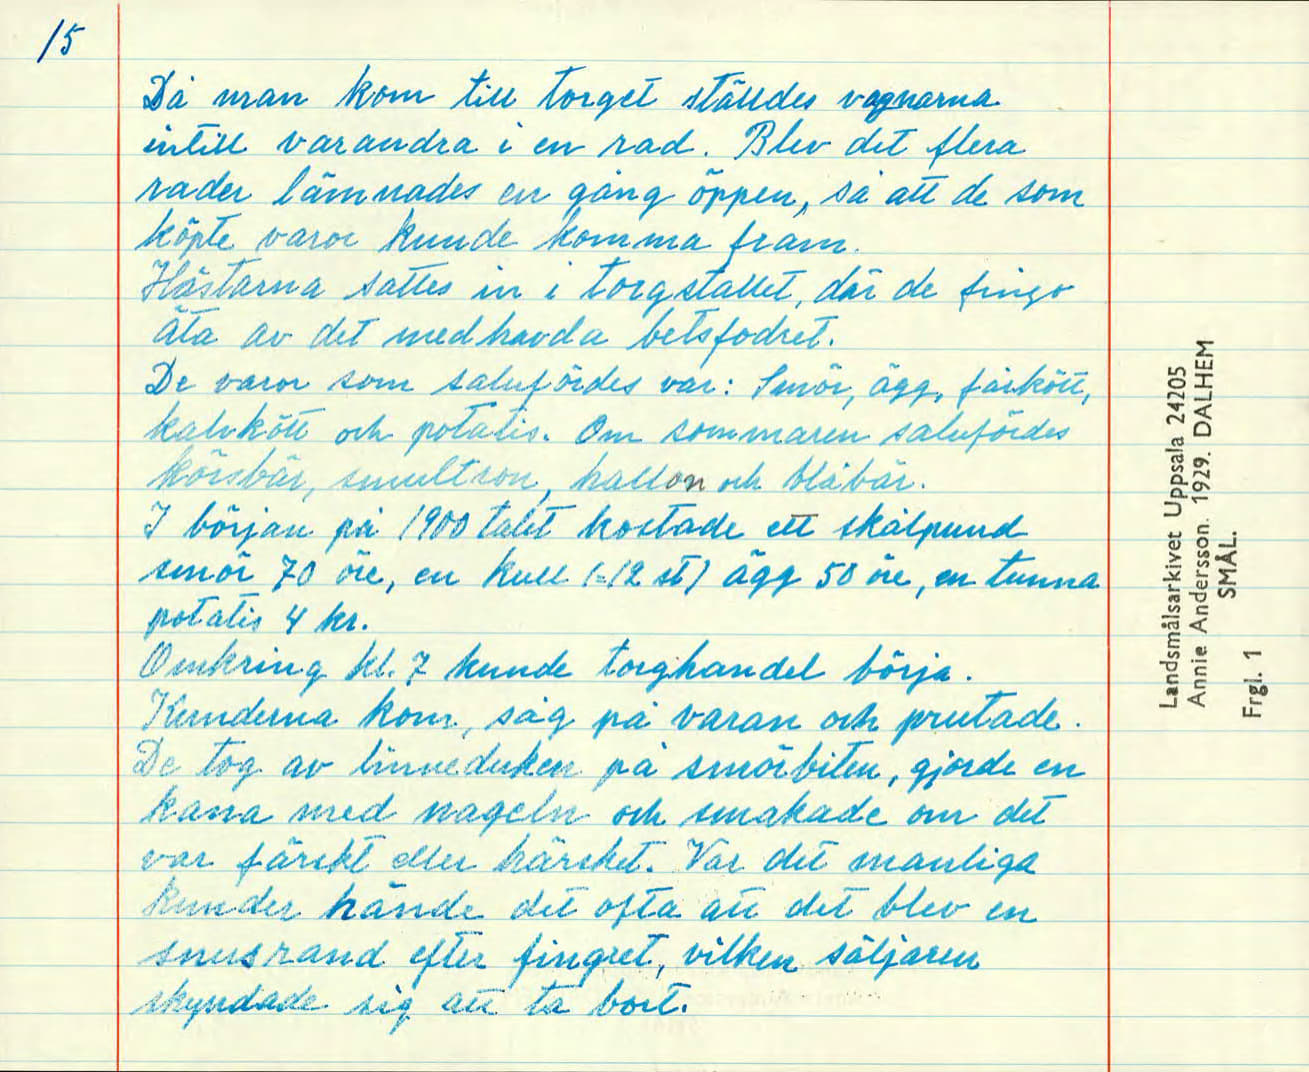 15
Då man kom till torget ställdes vagnarna
intill varandra i en rad. Blev det flera
rader lämnades en gång öppen, så att de som
köpte varor kunde komma fram.
Hästarna sattes in i torgstallet, där de fingo
äta av det medhavda betsfodret.
De varor som salufördes var: Smör, ägg, fårkött,
kalvkött och potatis. Om sommaren salufördes
körsbär, smultron, hallon och blåbär.
I början på 1900 talet kostade ett skålpund
smör 70 öre, en kull (=12 st) ägg 50 öre, en tunna
potatis 4 kr.
Omkring kl. 7 kunde torghandel börja.
Kunderna kom, såg på varan och prutade.
De tog av linneduken på smörbiten, gjorde en
kana med nageln och smakade om det
var färskt eller härsket. Var det manliga
kunder hände det ofta att det blev en
snusrand efter fingret, vilken säljaren
skyndade sig att ta bort.
Landsmålsarkivet Uppsala 24205
Annie Andersson. 1929. DALHEM
SMÅL.
Frgl. 1